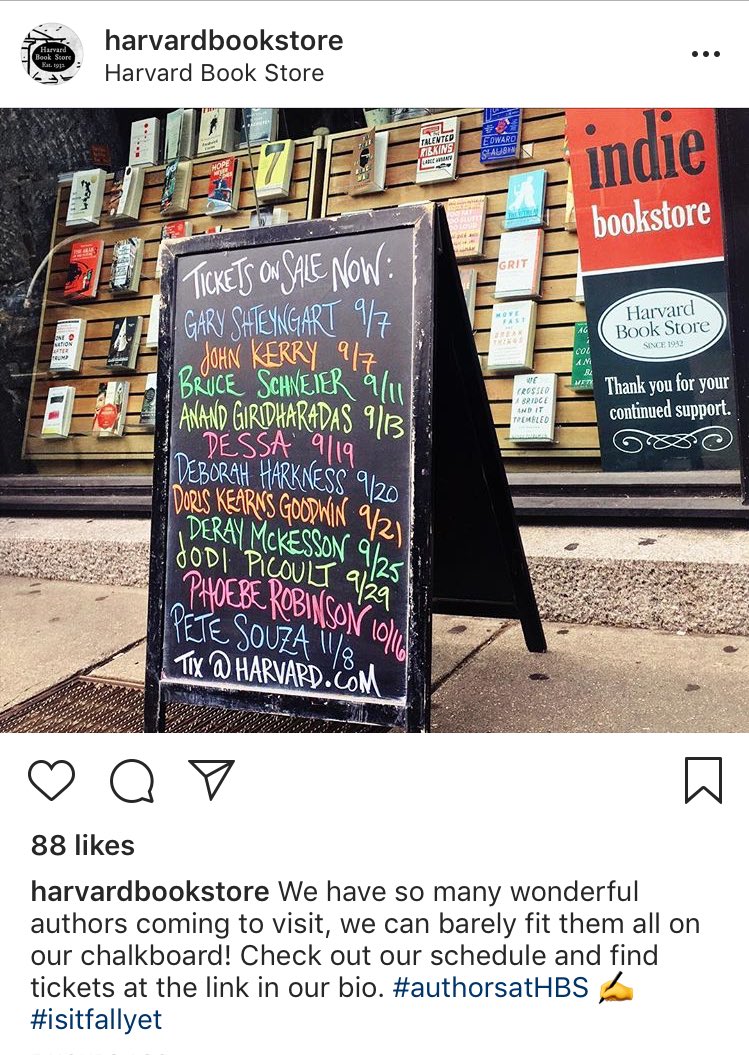 harvardbookstore
Harvard Book Store
Harvard
Book Store
Est. 1932
HOPE
NEVER
DIES
7
THE
TALENTED
RIBKINS
LADEE HUBBARD
EDWARD
GRIT
MOVE
FAST
AND
BREAK
THINGS
WE
CROSSED
A BRIDGE
AND IT
TREMBLED
ONE
NATION
AFTER
TRUMP
indie
bookstore
Harvard
Book Store
SINCE 1932
Thank you for your
continued support.
TICKETS ON SALE NOW:
GARY SHTEYNGART 9/7
JOHN KERRY 9/7
BRUCE SCHNEIER 9/11
ANAND GIRIDHARADAS 9/13
DESSA 9/19
DEBORAH HARKNESS 9/20
DORIS KEARNS GOODWIN 9/21
DERAY MCKESSON 9/25
JODI PICOULT 9/29
PHOEBE ROBINSON 10/16
PETE SOUZA 11/8
TIX @ HARVARD.COM
88 likes
harvardbookstore We have so many wonderful
authors coming to visit, we can barely fit them all on
our chalkboard! Check out our schedule and find
tickets at the link in our bio. #authorsatHBS ✍️
#isitfallyet